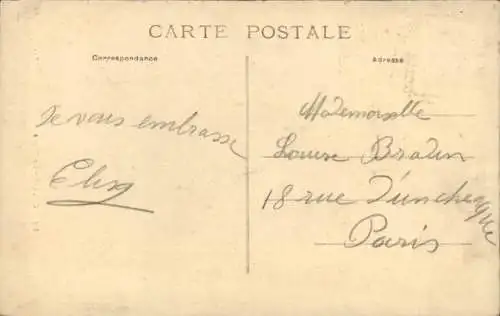 CARTE POSTALE
Correspondance
Adresse
Je vous embrasse
Mademoiselle
Louise
18 rue
Paris